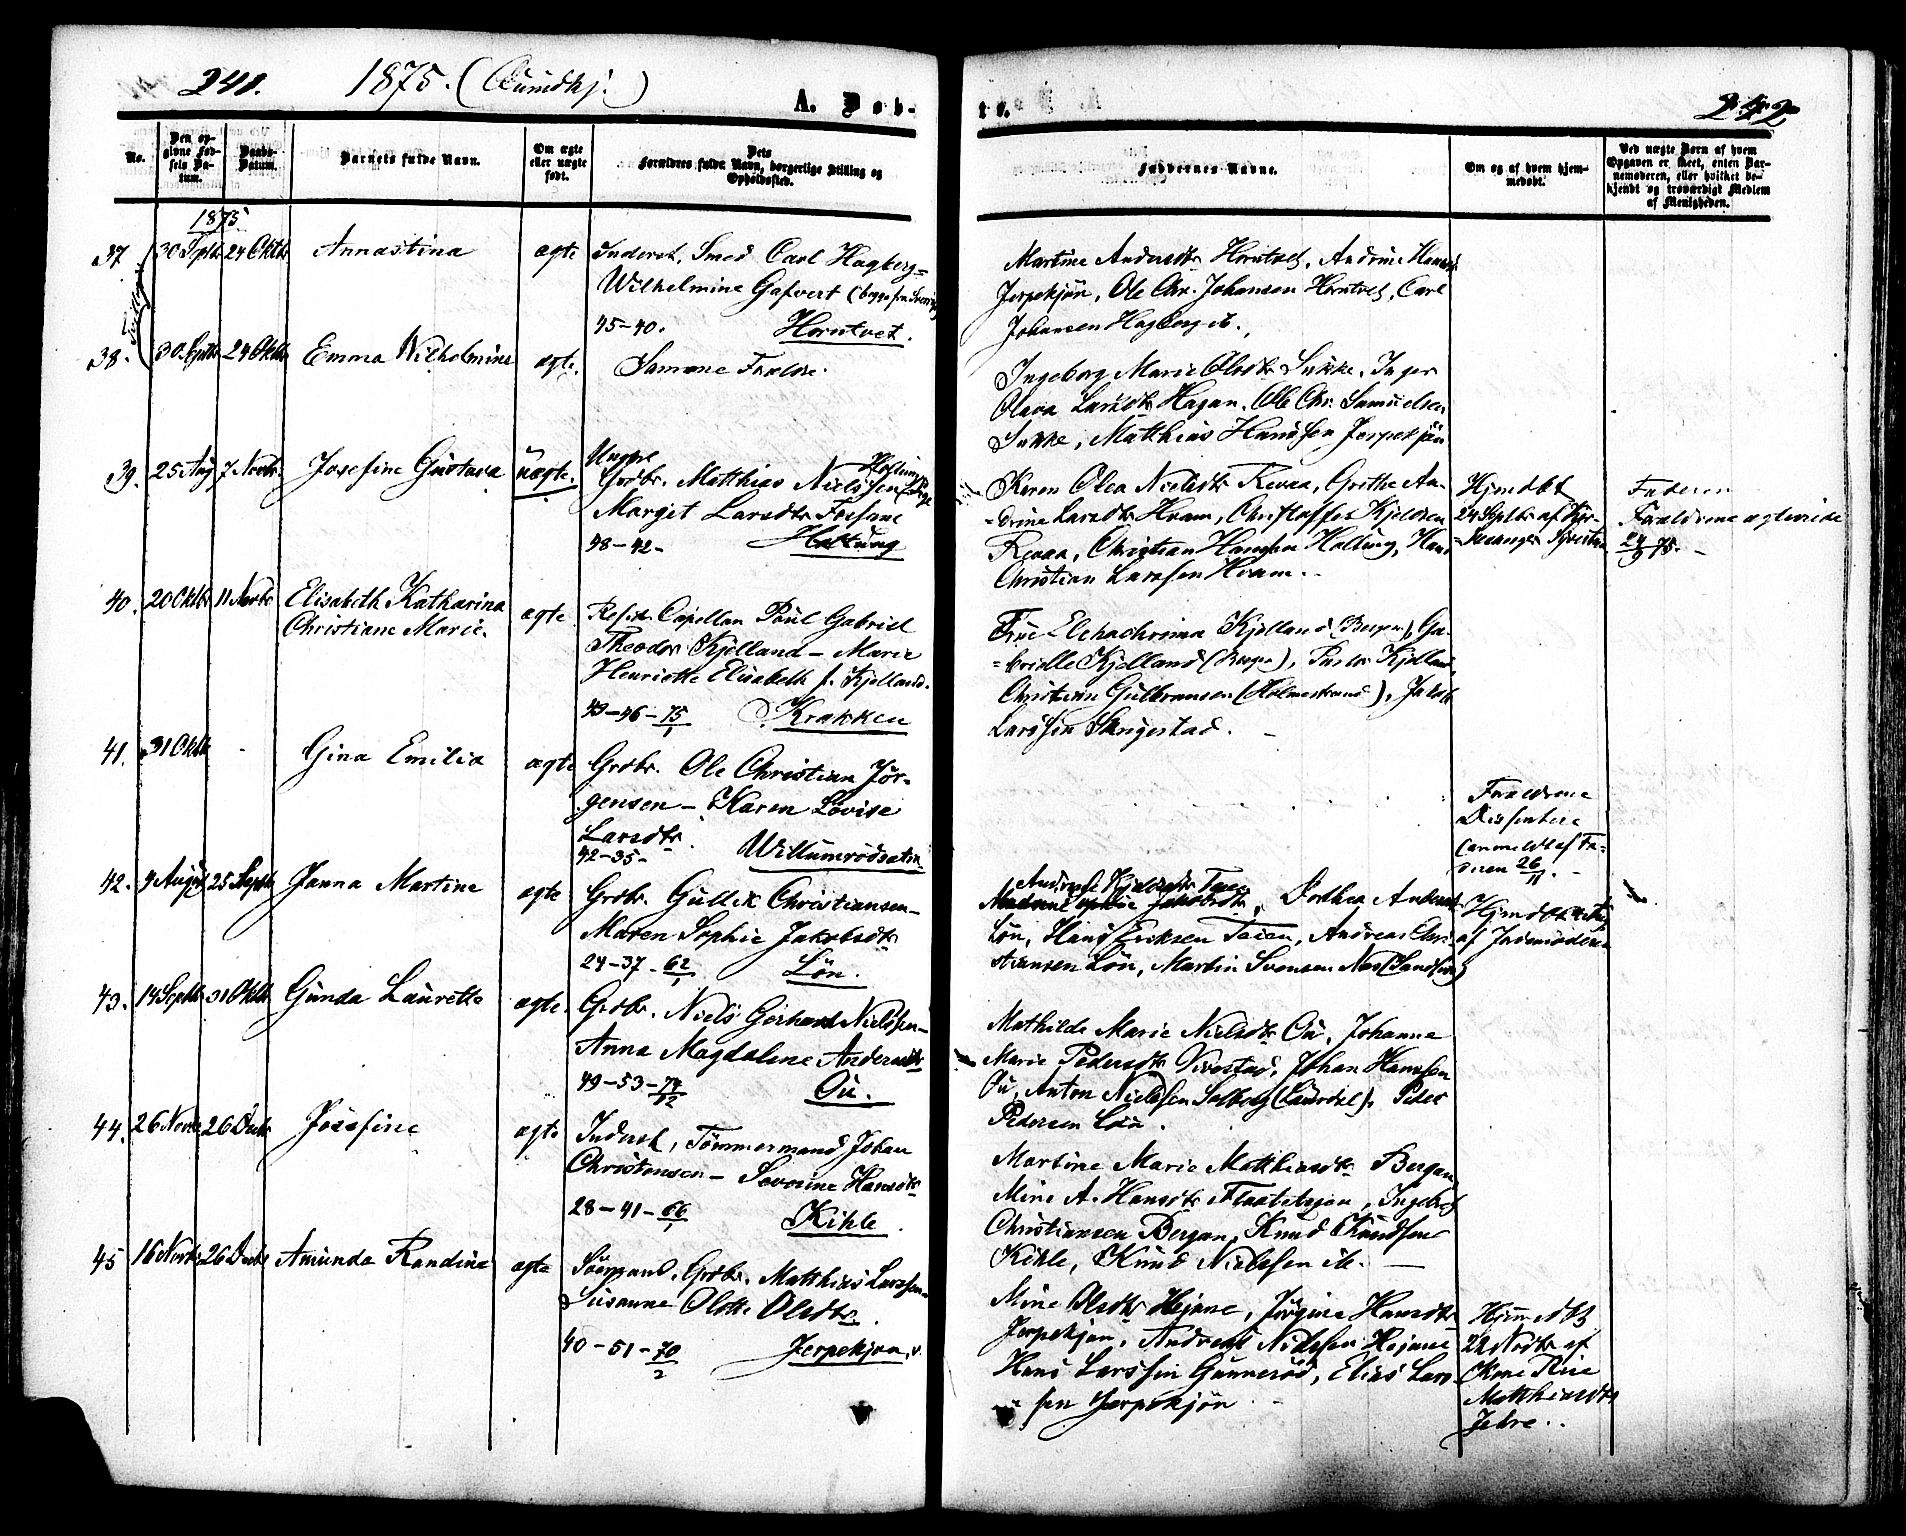 241.
1875. (Qvindkj.)
A. Døb-
te.
242
No.
Den opgivne Fødsels Datum.
Daabs-Datum.
Barnets fulde Navn.
Om ægte eller uægte født.
Dets Forældres fulde Navn, borgerlige Stilling og Opholdssted.
Faddernes Navne.
Om og af hvem hjemmedøbt.
Ved uægte Børn af hvem Opgaven er skeet, enten Barnemoderen, eller hvilket bekjendt og troværdigt Medlem af Menigheden.
1875
37 30 Septbr 24 Oktbr Annastina ægte Inderst, Smed Carl Hagberg=
Wilhelmine Gafvert (begge fra Sverige)
45-40. Horntvet.
Martine Andersdtr Horntvet, Andrine Hansd
Jerpekjøn, Ole Chr. Johansen Horntvet, Carl
Johansen Hagberg ib.
38. 30 Septbr 24 Oktbr Emma Wilhelmine ægte. Samme Forældre.
Ingeborg Marie Olsdtr Sukke, Inger
Olava Larsdtr Hagan, Ole Chr. Samuelsen
Sukke, Matthias Hanssen Jerpekjøn
39. 25 Aug 7 Novbr. Josefine Gustava uægte. Ungkr
Grdbr. Matthias Nielssen
Marget Larsdtr Fossane
48-42- Holtung
Karen Olea Nielsdtr Revaa, Grethe An-
=drine Larsdtr Hvam, Christoffer Kjeldsen
Revaa, Christian Hanssen Holtung, Hans
Christian Larssen Hvam.
Hjemdbt
24 Septbr af
Faderen
Forældrene agtevide
24/9 75.
40. 20 Oktbr 11 Novbr Elisabeth Katharina
Christiane Marie.
ægte. Resid. Capellan Paul Gabriel
Theodor Kjelland - Marie
Henriette Elisabeth f. Kjelland.
49-46-75/1 Krakken
Frue Kjelland (Bergen), Ga-
=brielle Kjelland (Bergen), Kjelland,
Christian Gulbransen (Holmestrand), Jakob
Larssen Slangestad.
41. 31 Oktb - Gina Emilia ægte Grdbr. Ole Christian Jör-
gensen - Karen Lovise
Larsdtr.
42-35- Willumrødsaten
Forældrene
Dissentere
(anmeldt af Fa-
deren 26/11.
42. 9 August 25 Septb Janna Martine ægte Grdbr. Gullik Christiansen-
Maren Sophie Jakobsdtr
24-37-62/1 Løn.
Dorthea Andersd
Løn, Hans Eriksen Taien, Andreas Chri-
stiansen Løn, Martin Svensen Næs (Sandsvær)
Hjemdbt
af Jordmoderen
43. 14 Septbr 31 Oktb Gunda Laurette ægte. Grdbr. Niels Gerhard Nielssen-
Anna Magdalene Andersdtr
49-53-74/12 Ou.
Mathilde Marie Nielsdtr Ou, Johanne
Marie Pedersdtr Vivestad, Johan Hanssen
Ou, Anton Nielssen Solberg (Laurdal), Peder
Pedersen Løn.
44. 26 Novbr 26 Decbr Josefine ægte Inderst, Tømmermand Johan
Christensen - Severine Hansdtr
28-41-66/1 Kihle.
Martine Marie Matthiasdtr Bergan
Mine A. Hansdtr Flaatetøjen, Ingebret
Christiansen Bergan, Knud Knudsen
Kihle, Knud Nielssen ib.
45 16 Novbr 26 Decbr Amunda Randine ægte Grdbr. Matthias Larssen-
Susanne Olette Olsdtr.
40-51-70/2 Jerpekjøn.
Mine Olsdtr Hejane, Jørgine Hansdtr
Jerpekjøn, Andreas Nilssen Hejane
Hans Larssen Gunnerød, Elias Lars-
sen Jerpekjøn
Hjemdbt
22 Novbr af
Matthiasdtr